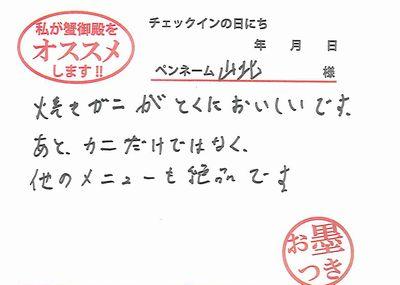 私が蟹御殿を
オススメ
します!!
チェックインの日にち
年 月 日
ペンネーム 山北 様
焼きガニがとくにおいしいです。
あと、カニだけではなく、
他のメニューも絶品です
お墨
つき